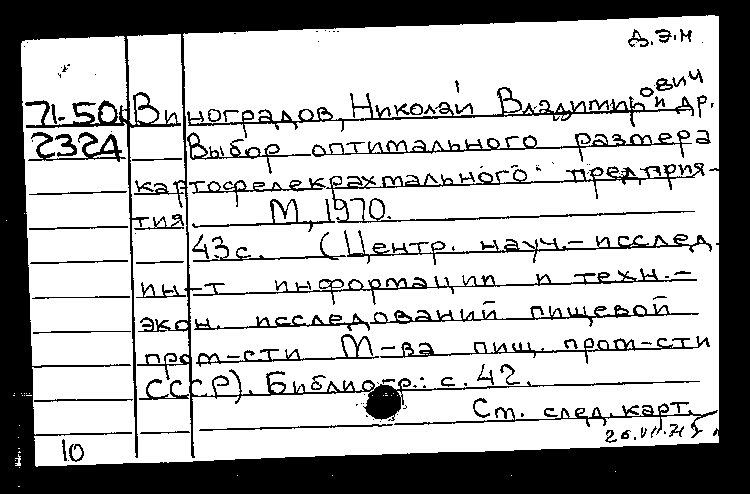 Д.Э.М
71-50
Виноградов, Николай Владимирович и др.
2324
Выбор оптимального размера
картофелекрахмального предприя-
тия. М., 1970.
43 с. (Центр. науч.-исслед.
ин-т информации и техн.-
экон. исследований пищевой
пром-сти М-ва пищ. пром-сти
СССР). Библиогр.: с. 42.
Ст. след. карт.
10